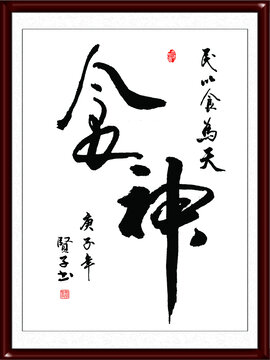 民以食為天
食神
庚子年
賢子书